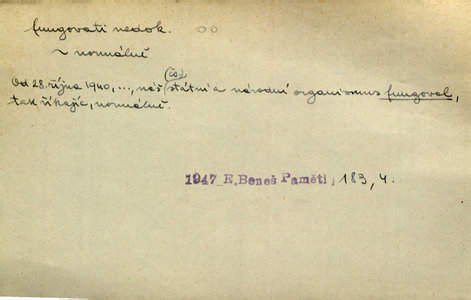 fungovati nedok.
~ normálně
(čs.)
Od 28. října 1940, ..., náš státní a národní organismus fungoval,
tak říkajíc, normálně.
1947 E. Beneš Paměti, 183, 4.